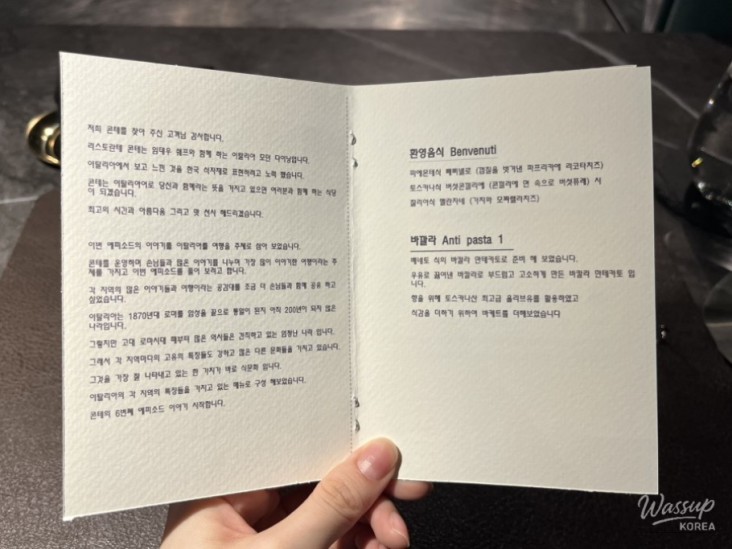 저희 콘떼를 찾아 주신 고객님 감사합니다.
리스토란테 콘떼는 임대우 쉐프와 함께 하는 이탈리아 모던 다이닝입니다.
이탈리아에서 보고 느낀 것을 한국 식자재로 표현하려고 노력 했습니다.
콘떼는 이탈리아어로 당신과 함께라는 뜻을 가지고 있으면 여러분과 함께 하는 식당
이 되겠습니다.
최고의 시간과 아름다움 그리고 맛 선사 해드리겠습니다.
이번 에피소드의 이야기를 이탈리아를 여행을 주제로 잡아 보았습니다.
콘떼를 운영하며 손님들과 많은 이야기를 나누며 가장 많이 이야기한 여행이라는 주
제를 가지고 이번 에피소드를 풀어 보려고 합니다.
각 지역의 많은 이야기들과 여행이라는 공감대를 조금 더 손님들과 함께 공유 하고
싶었습니다.
이탈리아는 1870년대 로마를 입성을 끝으로 통일이 된지 아직 200년이 되지 않은
나라입니다.
그렇지만 고대 로마시대 때부터 많은 역사들은 간직하고 있는 엄청난 나라 입니다.
그래서 각 지역마다의 고유의 특징들도 강하고 많은 다른 문화들을 가지고 있습니다.
그것을 가장 잘 나타내고 있는 한 가지가 바로 식문화 입니다.
이탈리아의 각 지역의 특징들을 가지고 있는 메뉴로 구성 해보았습니다.
콘떼의 6번째 에피소드 이야기 시작합니다.
환영음식 Benvenuti
피에몬테식 페페넬로 (껍질을 벗겨낸 파프리카에 리코타치즈)
토스카나식 버섯콘길리에 (콘길리에 면 속으로 버섯퓨레) 시
칠리아식 멜란자네 (가지와 모짜렐라치즈)
바깔라 Anti pasta 1
베네토 식의 바칼라 만테카토로 준비 해 보았습니다.
우유로 끓여낸 바칼라로 부드럽고 고소하게 만든 바칼라 만테카토 입
니다.
향을 위해 토스카나산 최고급 올리브유를 활용하였고
식감을 더하기 위하여 바게트를 더해보았습니다
Wassup
KOREA